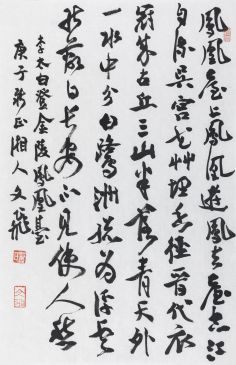 鳳凰臺上鳳凰遊鳳去臺空江
自流吳宮花艸埋幽徑晉代衣
冠成古丘三山半落青天外
一水中分白鷺洲總為浮雲
能蔽日長安不見使人愁
李太白登金陵鳳凰臺
庚子新正湘人文飛